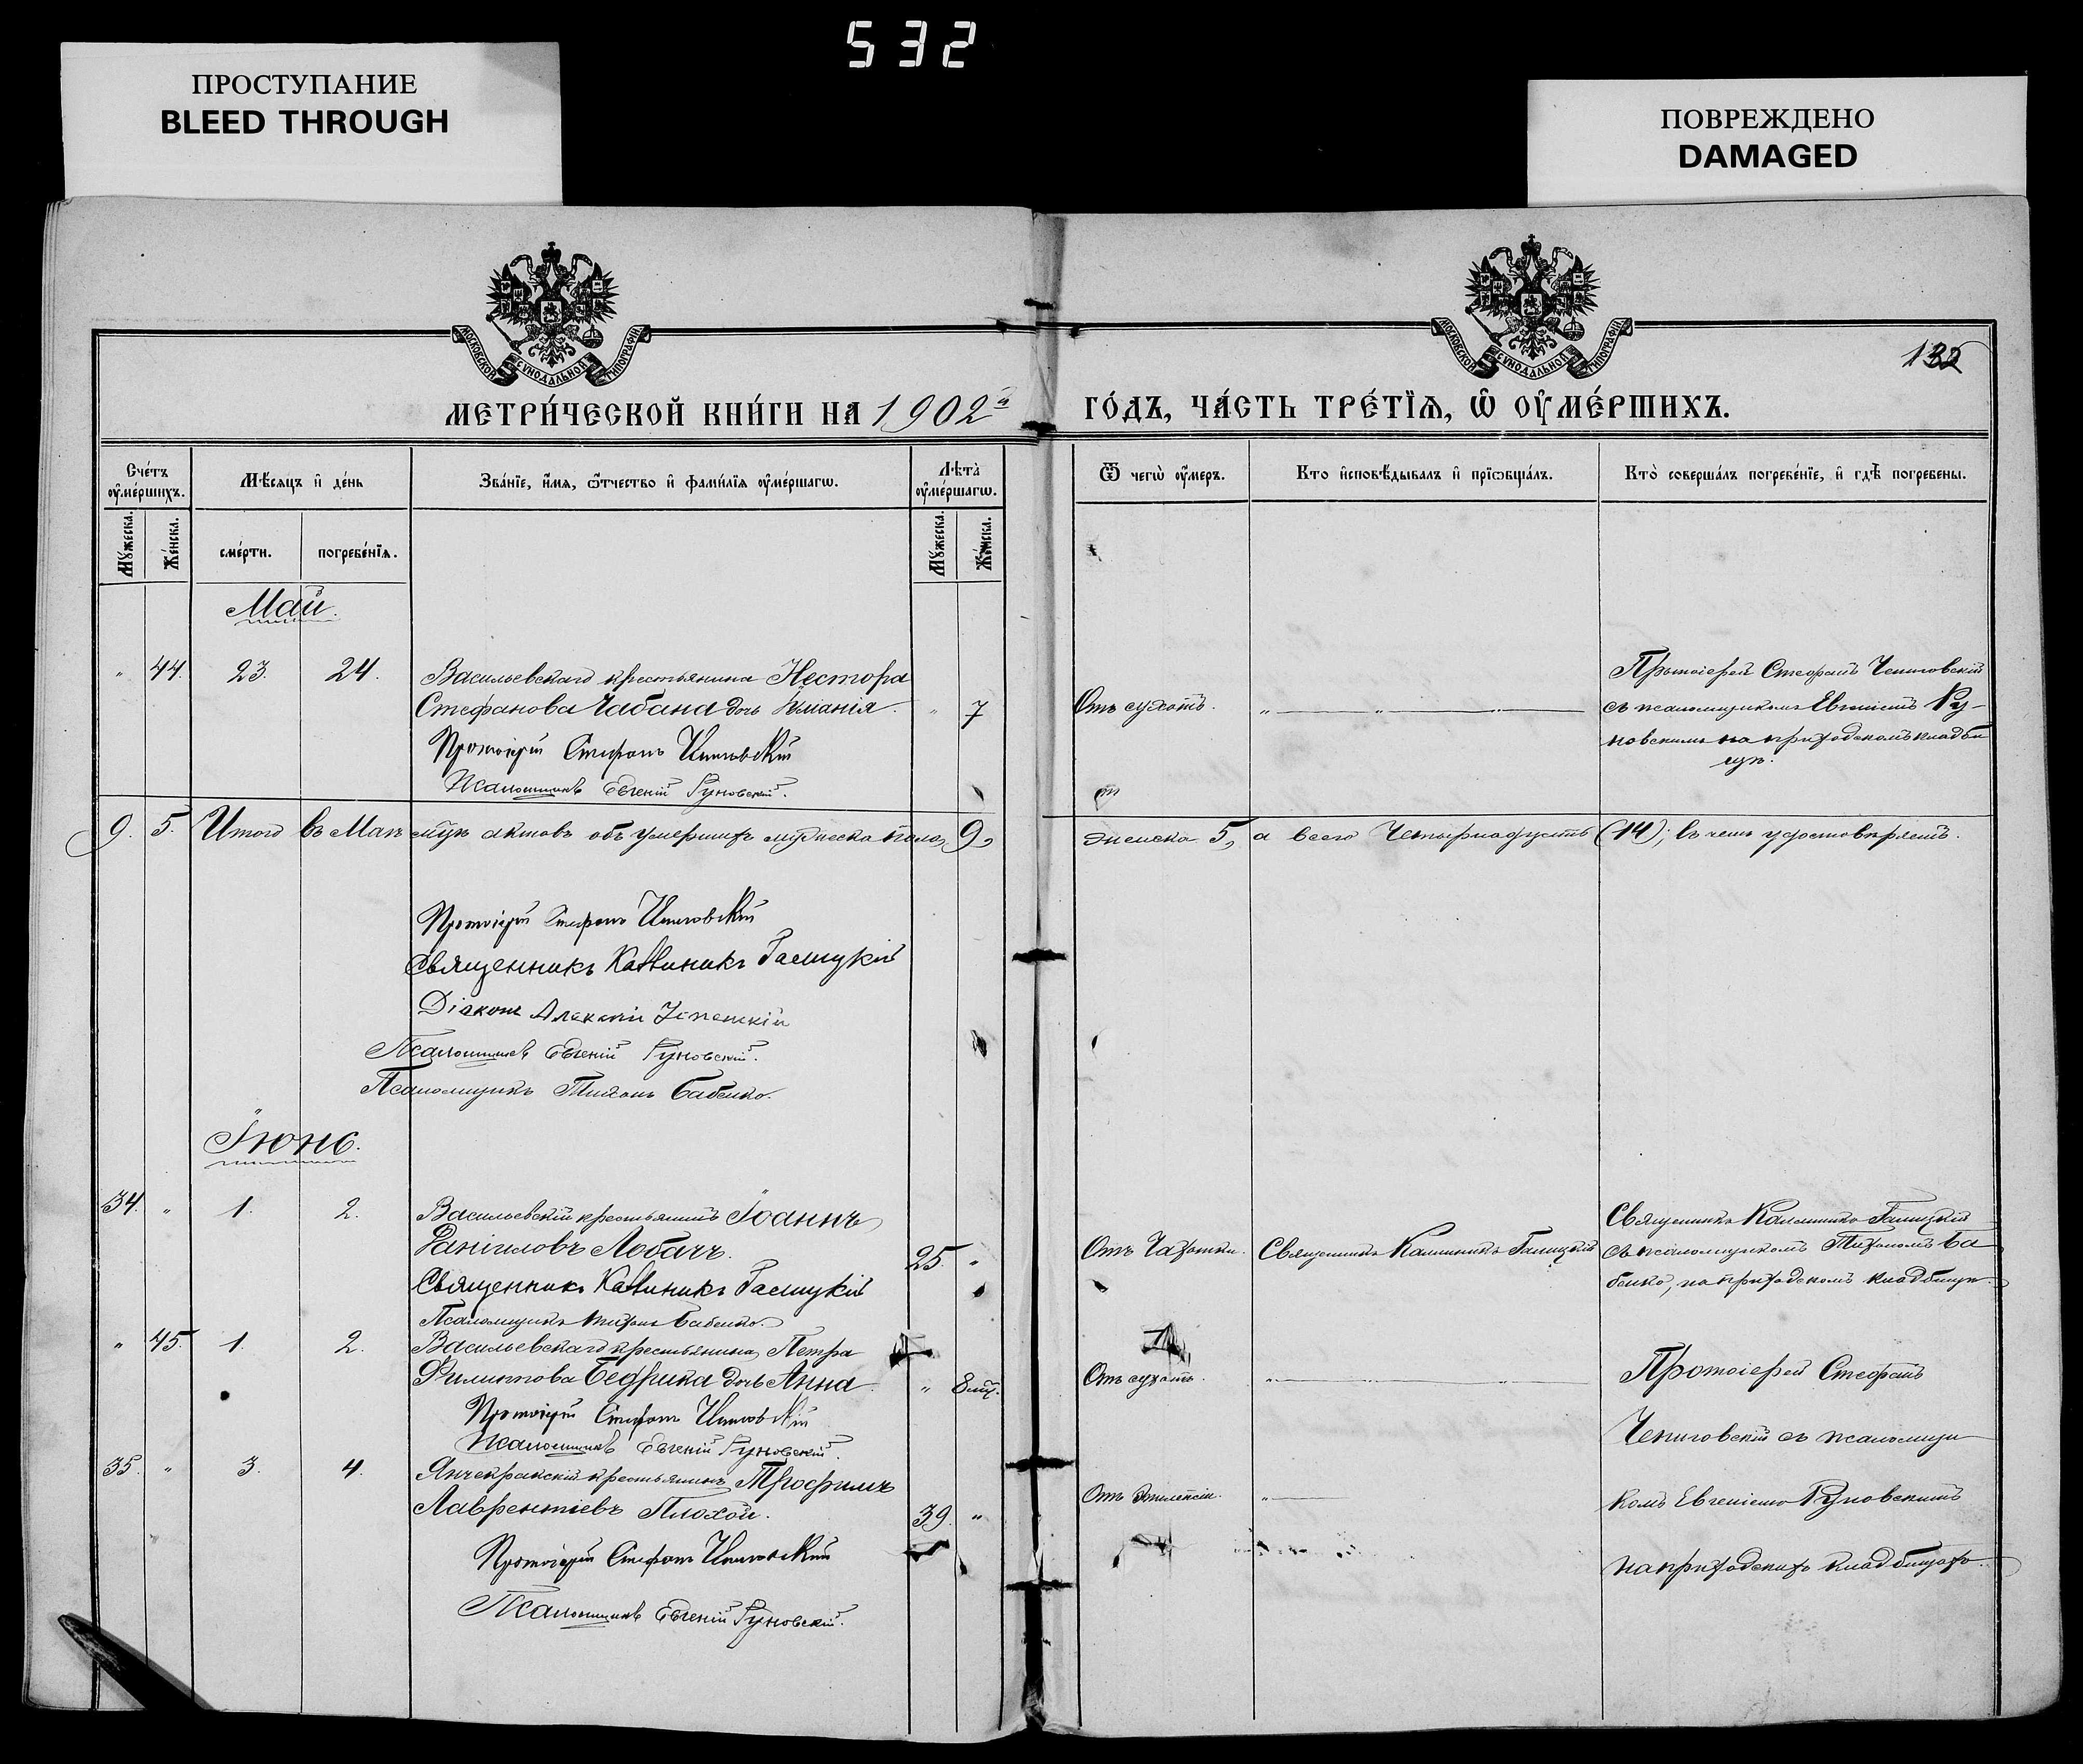 532
ПРОСТУПАНИЕ
BLEED THROUGH
ПОВРЕЖДЕНО
DAMAGED
МОСКОВСКОЙ СѴНОДАЛЬНОЙ ТИПОГРАФІИ
МОСКОВСКОЙ СѴНОДАЛЬНОЙ ТИПОГРАФІИ
МЕТРИ́ЧЕСКОЙ КНИ́ГИ НА 1902й
ГО́ДЪ, ЧА́СТЬ ТРЕ́ТЇѦ, Ѡ҆ ОУ҆МЕ́РШИХЪ.
Сче́тъ оу҆ме́ршихъ.
Мѣ́сѧцъ и҆ де́нь
Зва́нїе, и҆́мѧ, ѻ҆́тчество и҆ фами́лїѧ оу҆ме́ршагѡ.
Лѣ́та оу҆ме́ршагѡ.
Ѿ чегѡ̀ оу҆́меръ.
Кто и҆сповѣ́дывалъ и҆ прїѡбща́лъ.
Кто̀ соверша́лъ погребе́нїе, и҆ гдѣ̀ погребены.
Мꙋ́жеска.
Же́нска.
сме́рти.
погребе́нїѧ.
Мꙋ́жеска.
Же́нска.
Май.
" 44. 23. 24. Васильевскаго крестьянина Нестора
Стефанова Чабана дочь " 7
Отъ сухотъ. " " "
Протоіерей Стефанъ
съ псаломщикомъ Евгеніемъ Ру-
новскимъ на приходскомъ кладби
щѣ.
Протоіерей Стефанъ
Псаломщикъ Евгеній Руновскій.
9. 5. Итого въ Маѣ м-цѣ актовъ объ умершихъ мужеска пола, 9,
женска 5, а всего Четырнадцать (14); въ чемъ удостовѣряемъ.
Протоіерей Стефанъ
Священникъ Каллиникъ Галицкій
Діаконъ Алексій
Псаломщикъ Евгеній Руновскій.
Псаломщикъ Тихонъ Бабенко.
Іюнь.
34. " 1. 2. Васильевскій крестьянинъ Іоаннъ
Даніиловъ Лобачъ. 25. "
Отъ Чахотки. Священникъ Каллиникъ Галицкій
Священникъ Каллиникъ Галицкій
съ псаломщикомъ Тихономъ Ба
бенко, на приходскомъ кладбищѣ.
Священникъ Каллиникъ Галицкій
Псаломщикъ Тихонъ Бабенко.
" 45. 1. 2. Васильевскаго крестьянина Петра
Филиппова Бедрика дочь Анна. " 8 мц.
Отъ сухотъ. "
Протоіерей Стефанъ
Протоіерей Стефанъ
Псаломщикъ Евгеній Руновскій.
съ псаломщи
35. " 3. 4. Янчекракскій крестьянинъ Трофимъ
Лаврентіевъ Плохой. 39. "
Отъ Эпилепсіи. "
комъ Евгеніемъ Руновскимъ
на приходскихъ кладбищахъ.
Протоіерей Стефанъ
Псаломщикъ Евгеній Руновскій.